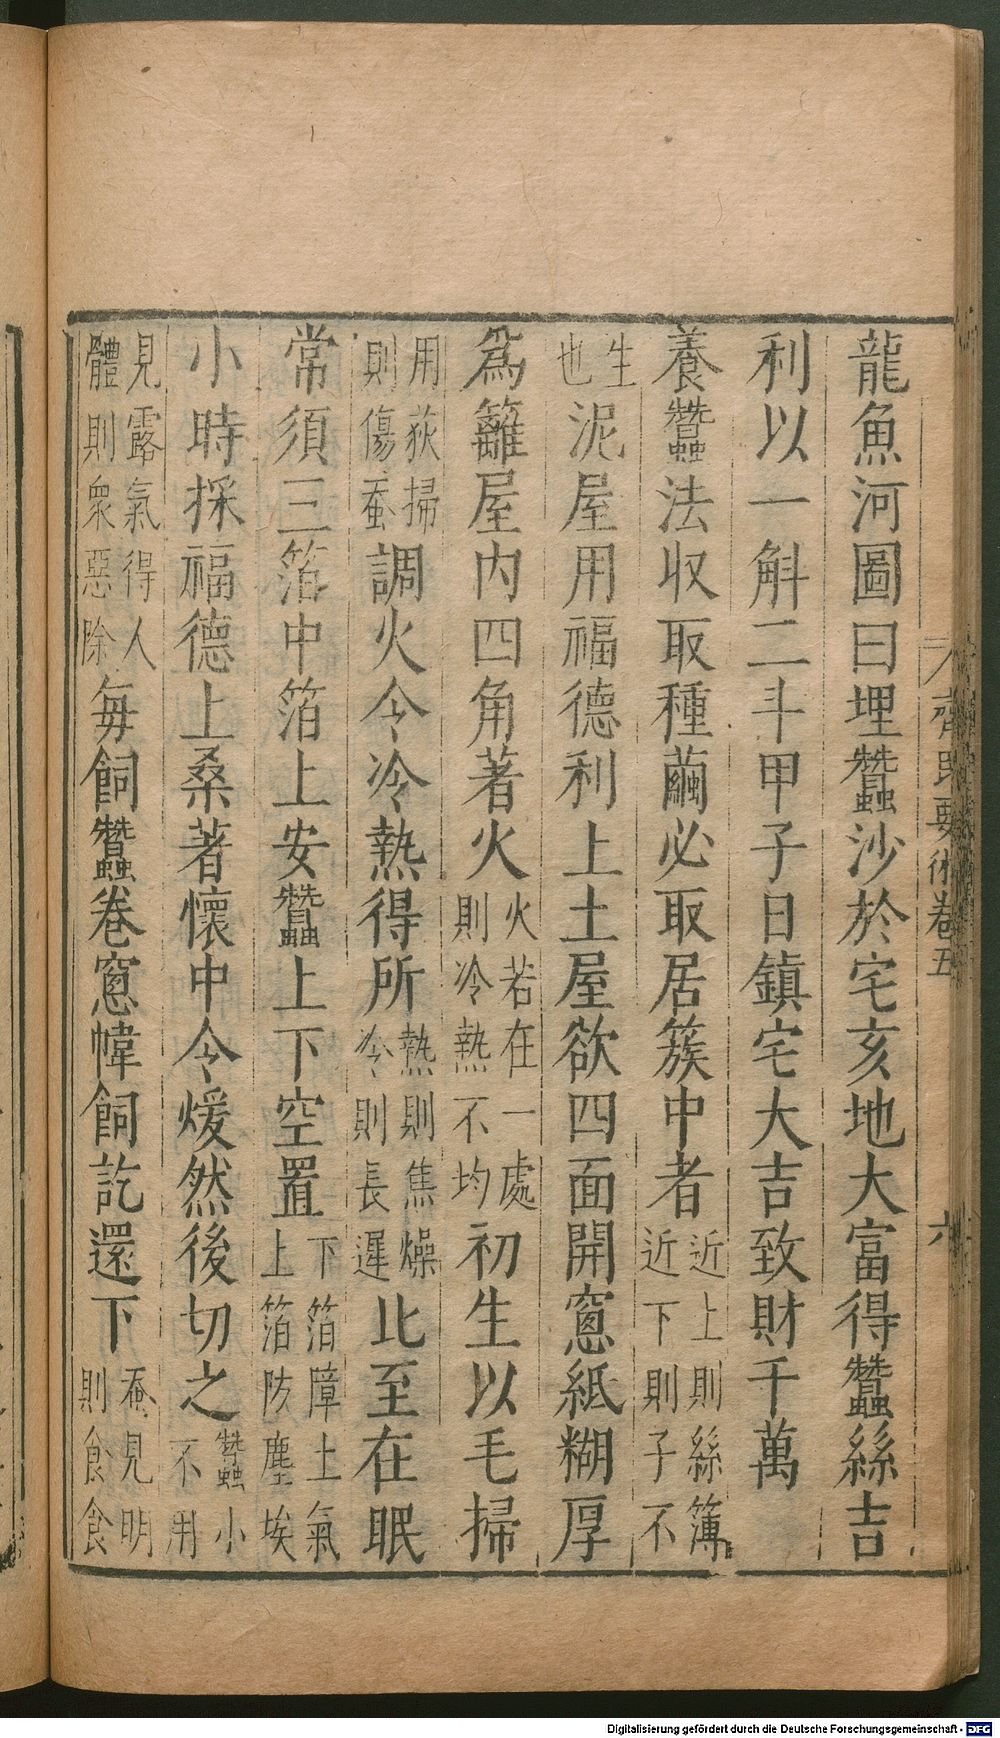 龍魚河圖曰埋蠶沙於宅亥地大富得蠶絲吉
利以一斛二斗甲子日鎮宅大吉致財千萬
養蠶法收取種繭必取居簇中者近上則絲簿近下則子不
生也泥屋用福德利上土屋欲四面開窻紙糊厚
為籬屋内四角著火火若在一處則冷熱不均初生以毛掃
用荻掃則傷蚕調火令冷熱得所熱則焦燥冷則長遲比至在眠
常須三箔中箔上安蠶上下空置下箔障土氣上箔防塵埃
小時採福德上桑著懷中令煖然後切之蠶小不用
見露氣得人體則衆惡除每飼蠶卷窻幃飼訖還下蚕見明則食食
齊民要術卷五
六
Digitalisierung gefördert durch die Deutsche Forschungsgemeinschaft - DFG